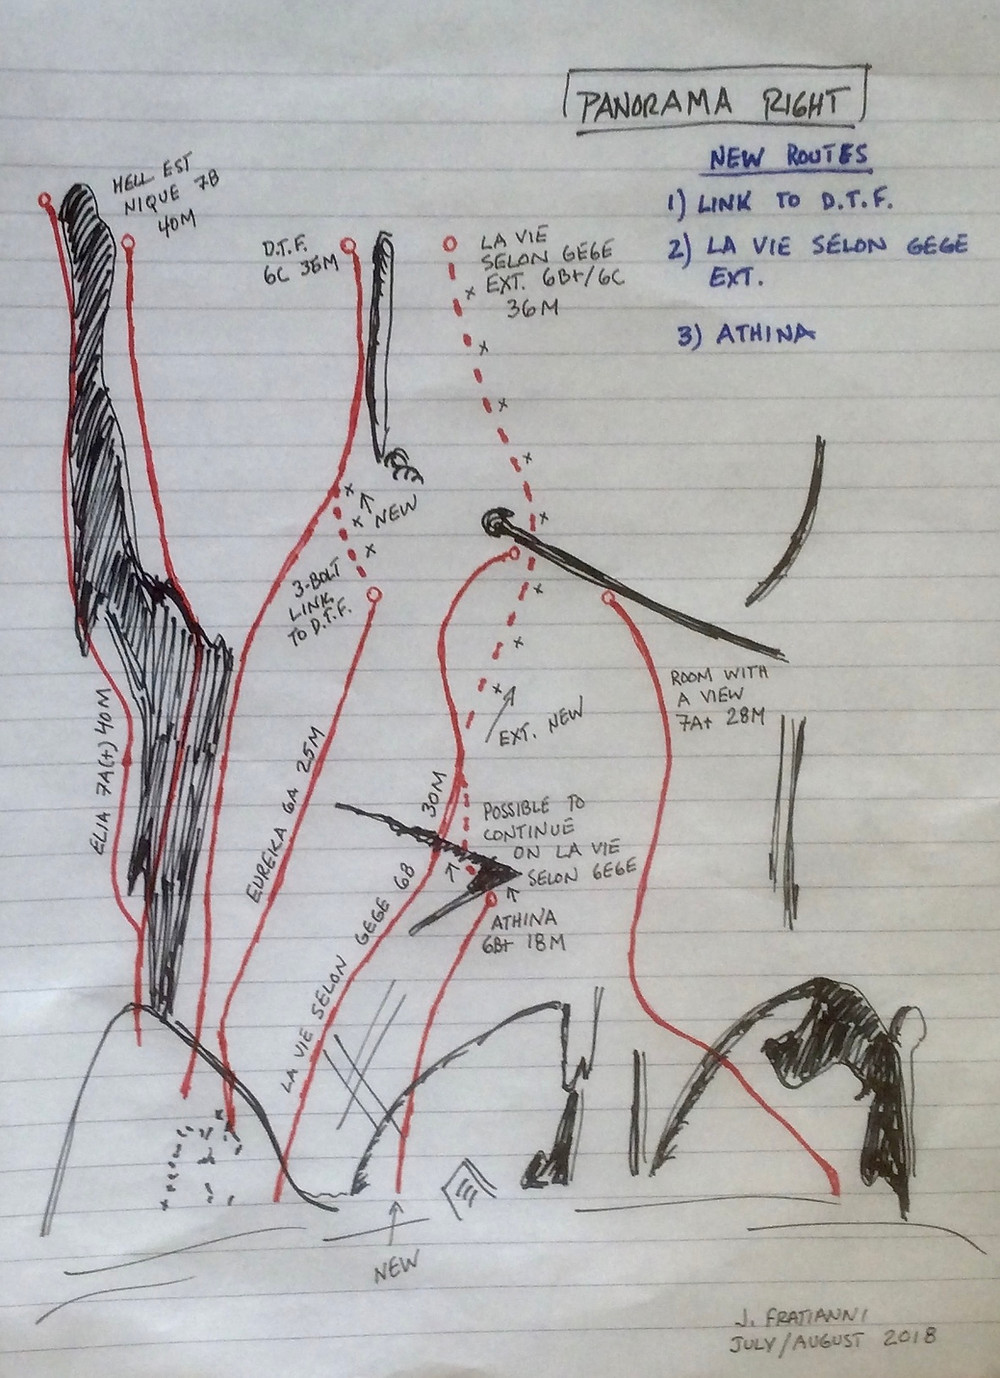 PANORAMA RIGHT
NEW ROUTES
1) LINK TO D.T.F.
2) LA VIE SELON GEGE
EXT.
3) ATHINA
HELL EST
NIQUE 7B
40M
D.T.F.
6C 36M
LA VIE
SELON GEGE
EXT. 6B+/6C
36M
NEW
3-BOLT
LINK
TO D.T.F.
ROOM WITH
A VIEW
7A+ 28M
EXT. NEW
ELIA 7A(+) 40M
EUREKA 6A 25M
LA VIE SELON GEGE 6B 30M
POSSIBLE TO
CONTINUE
ON LA VIE
SELON GEGE
ATHINA
6B+ 18M
NEW
J. FRATIANNI
JULY/AUGUST 2018